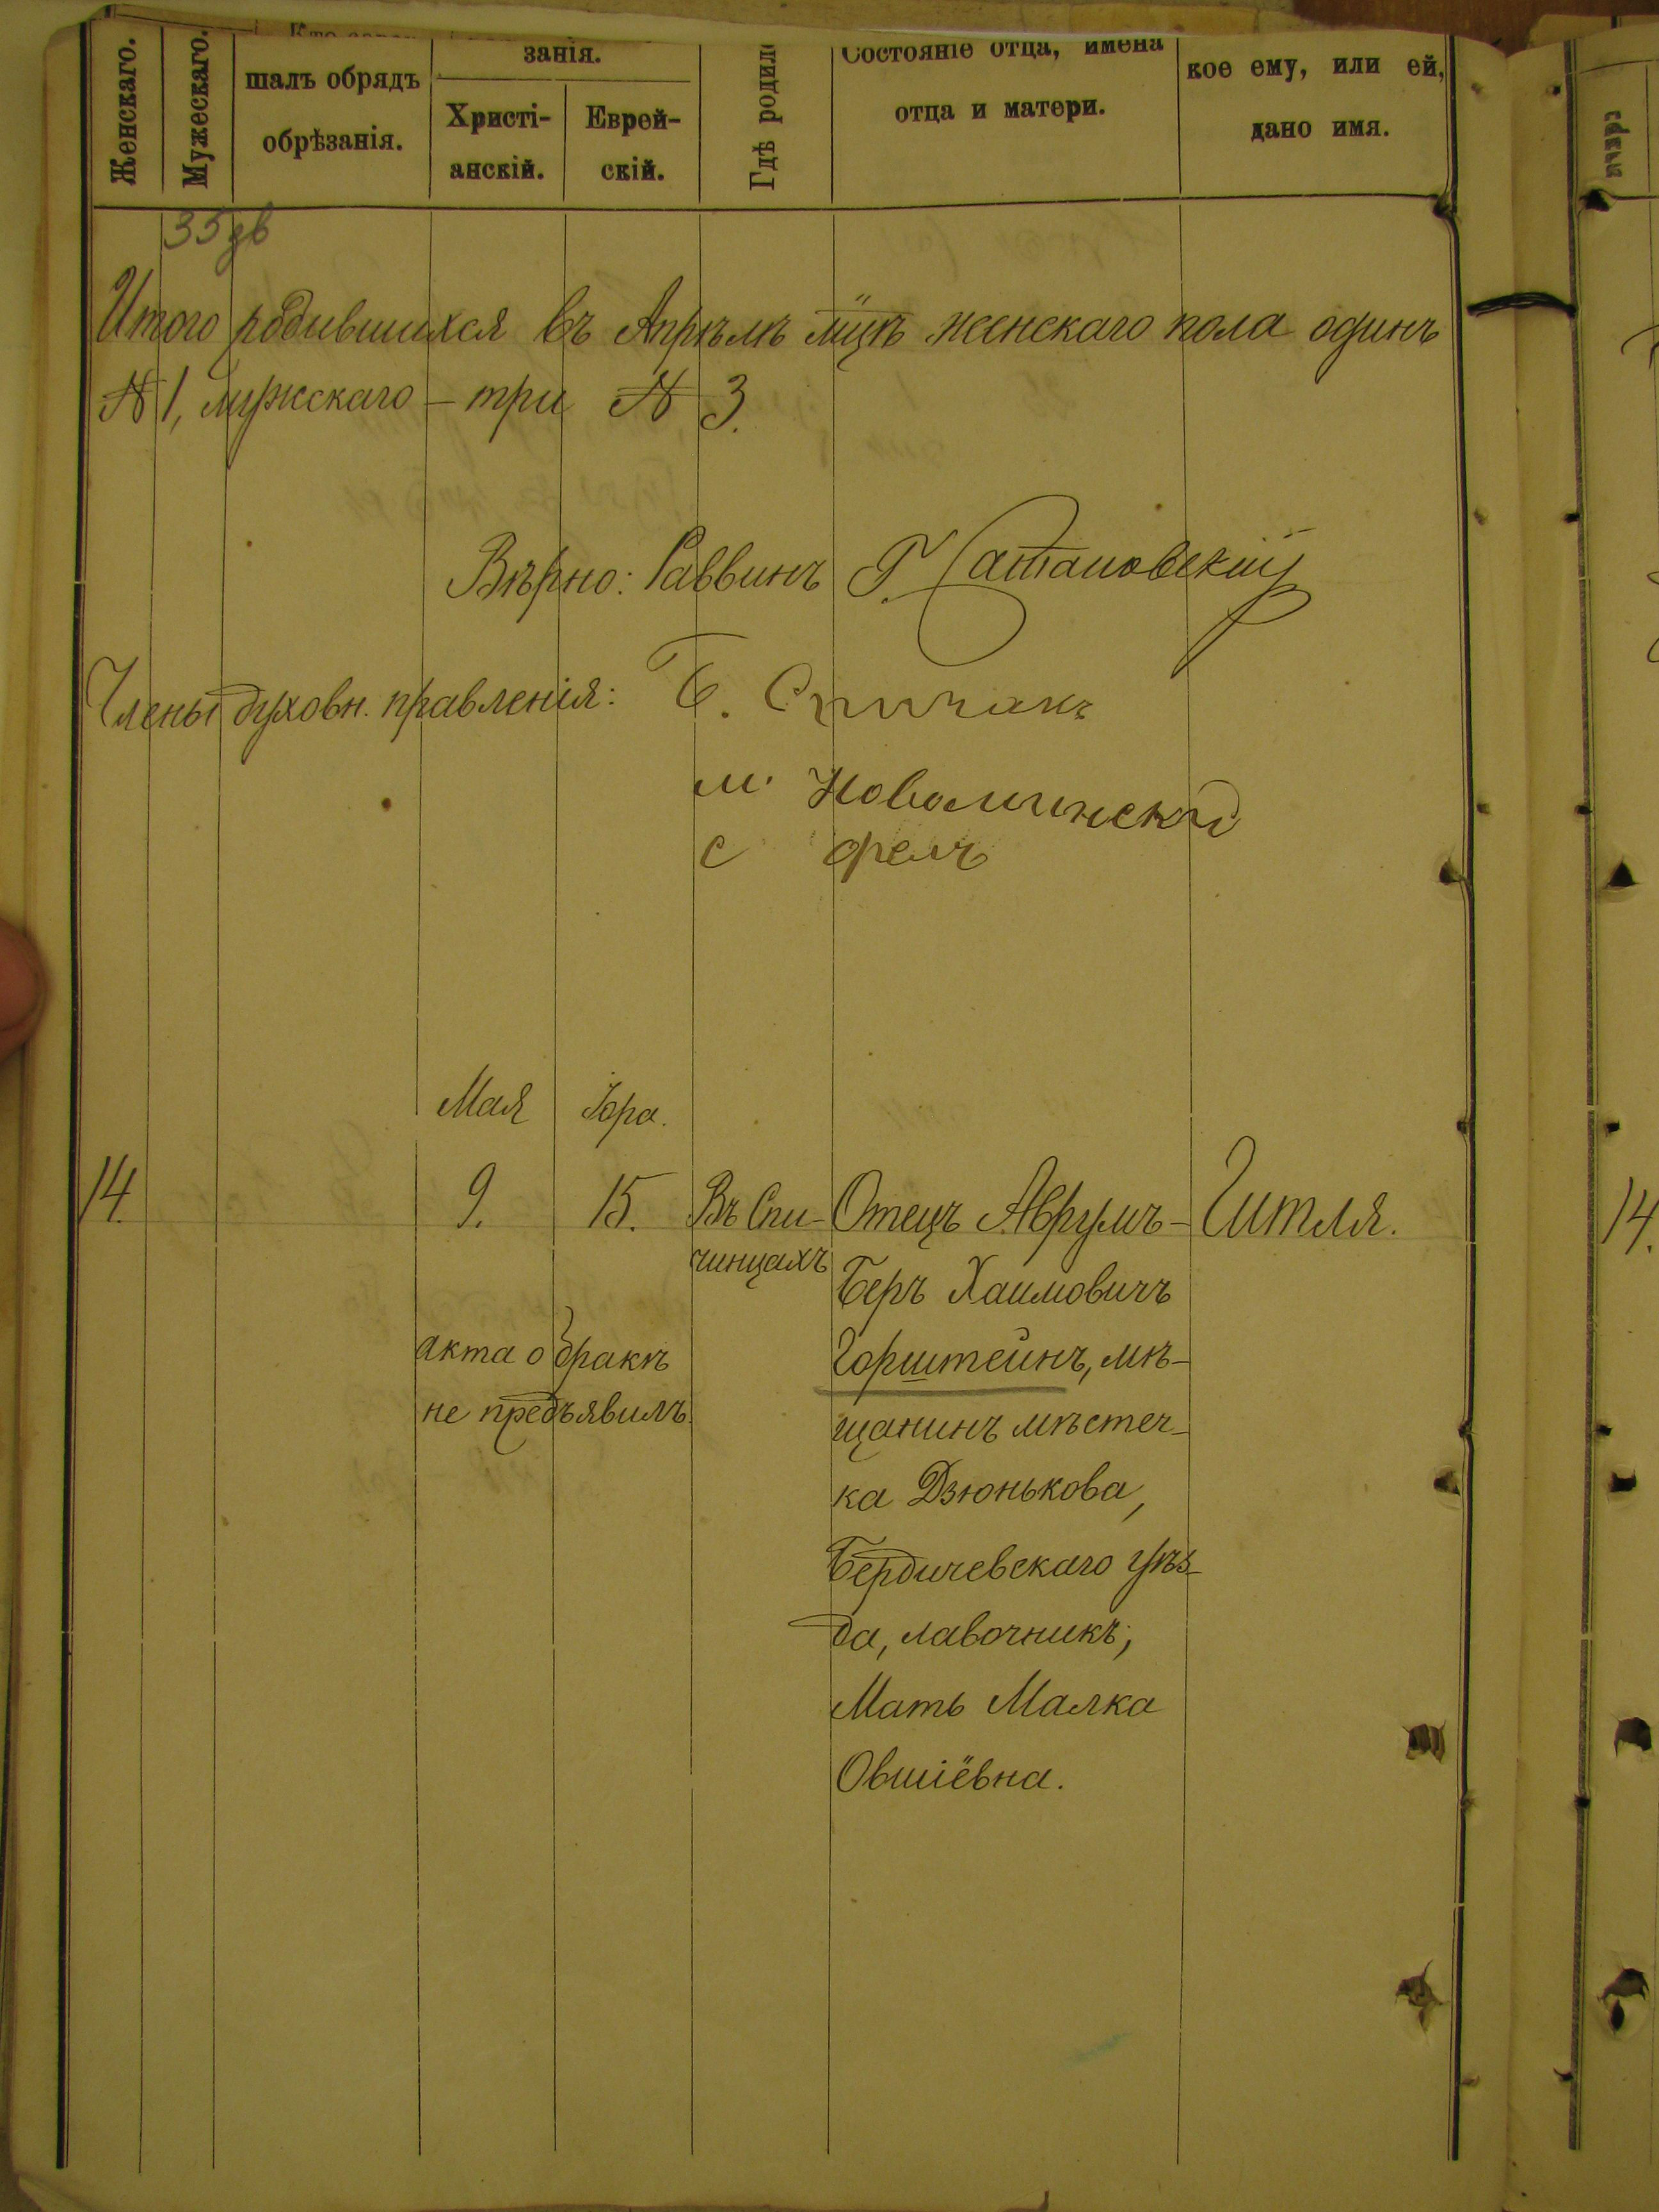 Женскаго.
Мужескаго.
шалъ обрядъ
обрѣзанія.
занія.
Христі-
анскій.
Еврей-
скій.
Гдѣ родил
Состояніе отца, имена
отца и матери.
кое ему, или ей,
дано имя.
35 зв
Итого родившихся въ Апрѣлѣ м̃цѣ женскаго пола одинъ
№ 1, мужскаго – три № 3.
Вѣрно: Раввинъ Р. Сатановскій
Члены духовн. правленія: Б. Спичакъ
м. Новоминскій
с
Мая
Іора.
14.
9.
15.
Въ Спи-
чинцахъ
Отецъ Аврумъ-
Беръ Хаимовичъ
Горштейнъ, мѣ-
щанинъ мѣстеч-
ка Дзюнькова,
Бердичевскаго уѣз-
да, лавочникъ;
Мать Малка
Овшіёвна.
Гитля.
акта о бракѣ
не предъявилъ.
14.